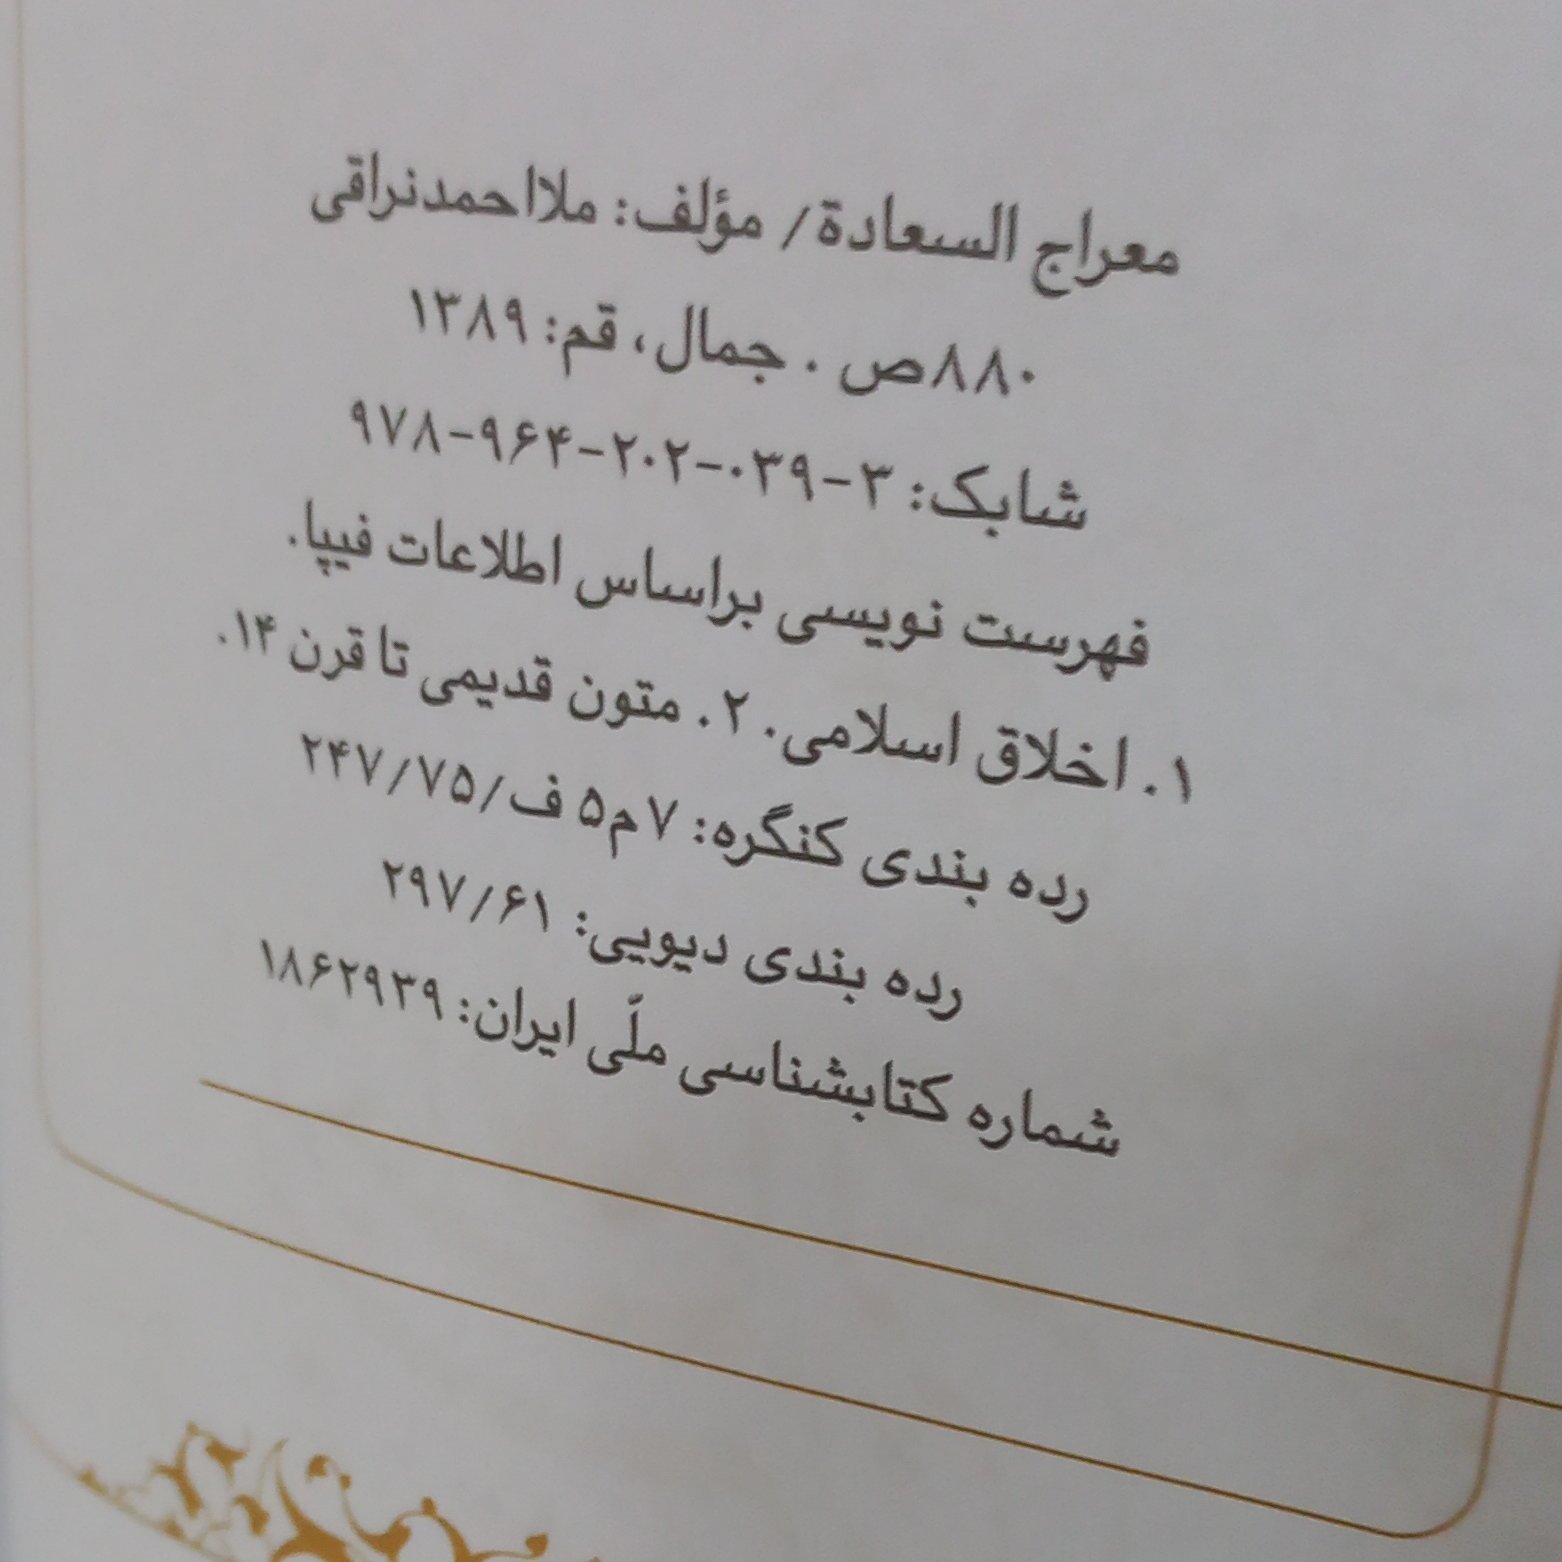 معراج السعادة/ مؤلف: ملااحمدنراقی
۸۸۰ص . جمال، قم: ۱۳۸۹
شابک: ۳-۰۳۹-۲۰۲-۹۶۴-۹۷۸
فهرست نویسی براساس اطلاعات فیپا.
۱. اخلاق اسلامی. ۲. متون قدیمی تا قرن ۱۴.
رده بندی کنگره: ۷م۵ ف/۲۴۷/۷۵
رده بندی دیویی: ۲۹۷/۶۱
شماره کتابشناسی ملّی ایران: ۱۸۶۲۹۳۹